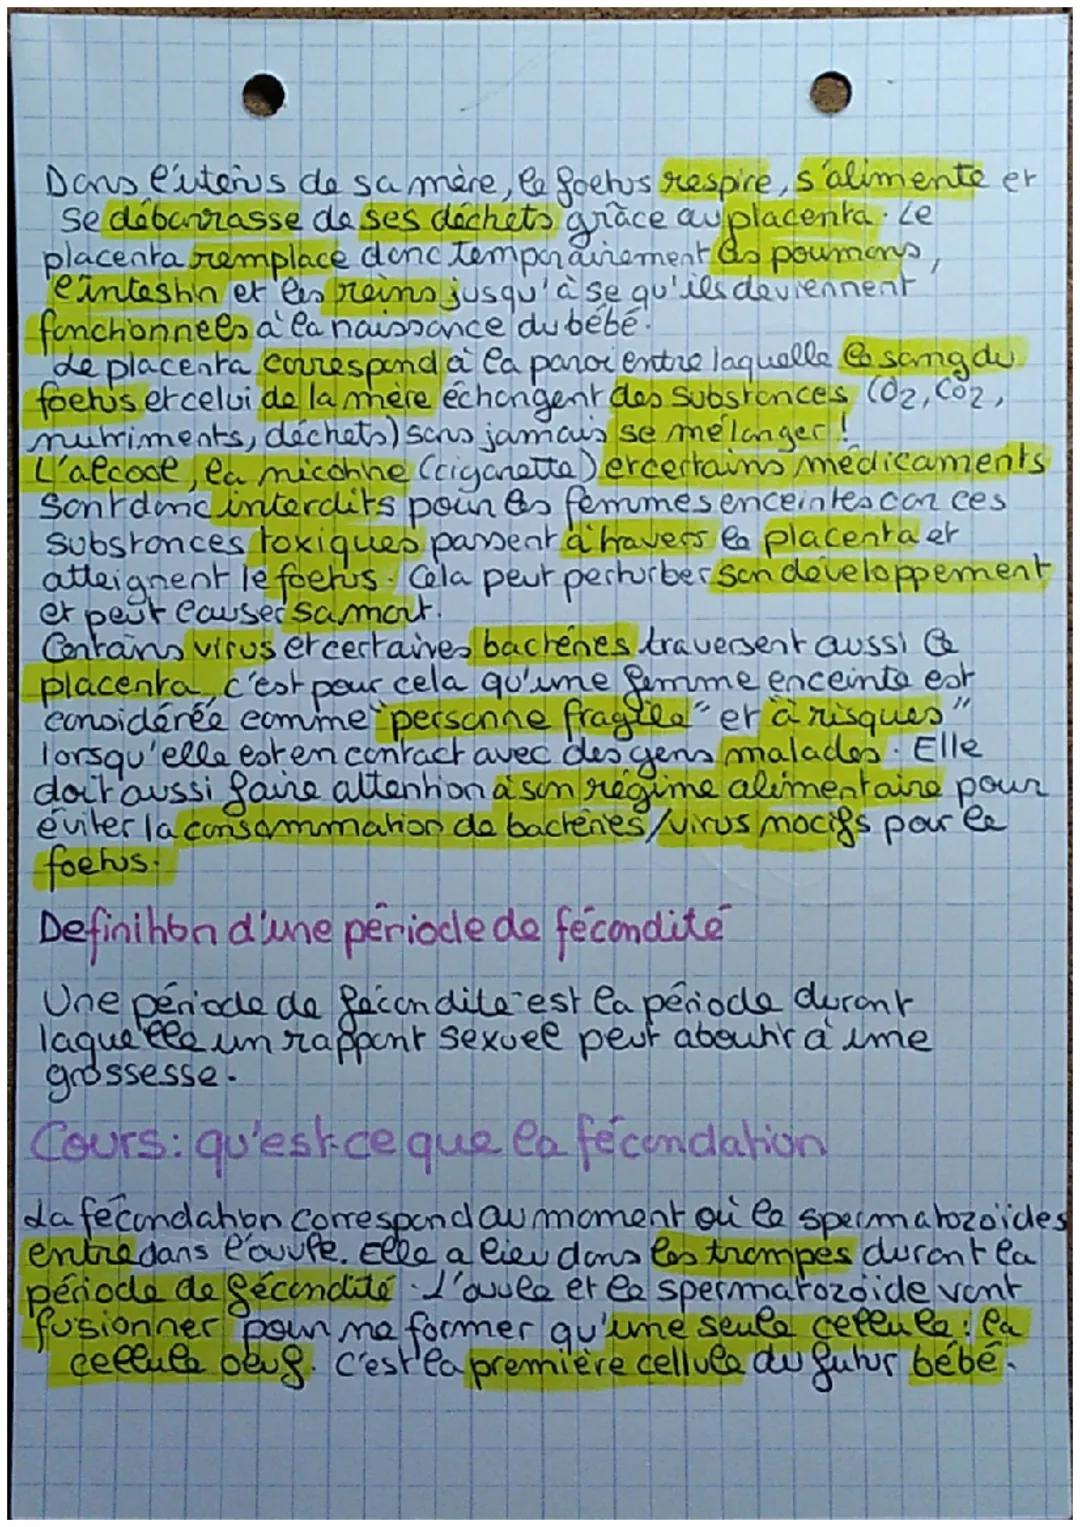 Dans l'utérus de sa mère, le foetus respire, s'alimente et
se débarrasse de ses déchets grâce au placenta. Le
placenta remplace donc temporairement les poumons,
l'intestin et les reins jusqu'à se qu'ils deviennent
fonctionnels à la naissance du bébé.
Le placenta correspond à la paroi entre laquelle le sang du
foetus et celui de la mère échangent des substances (O2, CO2,
nutriments, déchets) sans jamais se mélanger !
L'alcool, la nicotine (cigarette) et certains médicaments
sont donc interdits pour les femmes enceintes car ces
substances toxiques passent à travers le placenta et
atteignent le foetus. Cela peut perturber son développement
et peut causer sa mort.
Certains virus et certaines bactéries traversent aussi le
placenta, c'est pour cela qu'une femme enceinte est
considérée comme "personne fragile" et "à risques"
lorsqu'elle est en contact avec des gens malades. Elle
doit aussi faire attention à son régime alimentaire pour
éviter la consommation de bactéries/virus nocifs pour le
foetus.
Definition d'une période de fécondité
Une période de fécondité est la période durant
laquelle un rapport sexuel peut aboutir à une
grossesse.
Cours: qu'est-ce que la fécondation
La fécondation correspond au moment où le spermatozoïdes
entre dans l'ovule. Elle a lieu dans les trompes durant la
période de fécondité. L'ovule et le spermatozoïde vont
fusionner pour ne former qu'une seule cellule : la
cellule oeuf. C'est la première cellule du futur bébé.